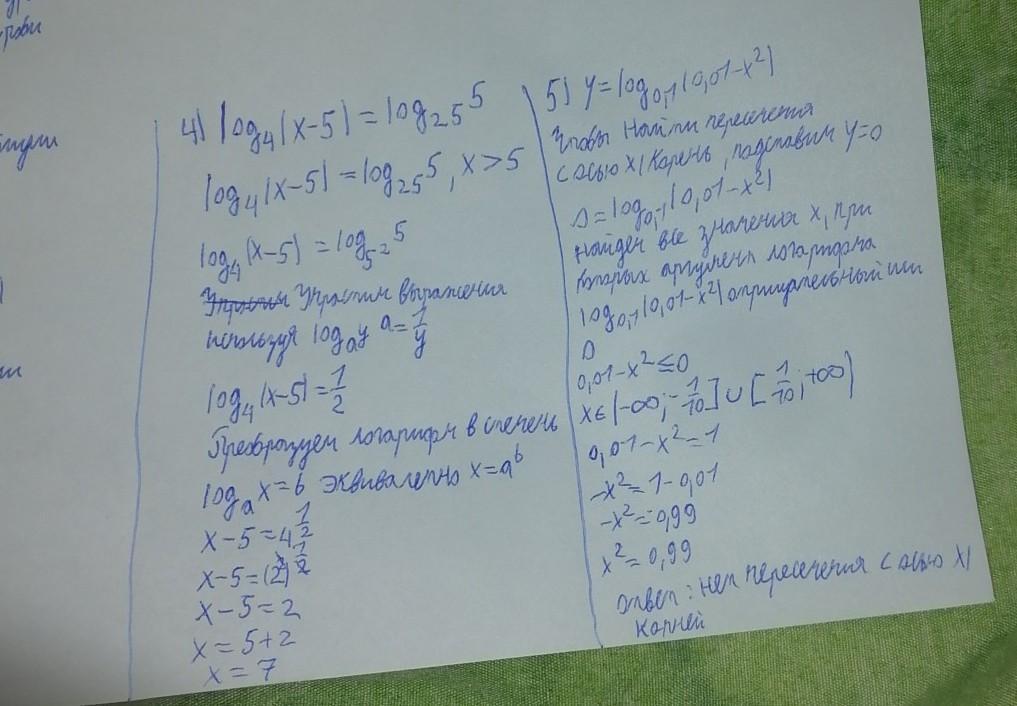 4) log₄(x-5) = log₂₅5
log₄(x-5) = log₂₅5, x>5
log₄(x-5) = log₅₂5
Упростим выражения
используя logₐy a = 1/y
log₄(x-5) = 1/2
Преобразуем логарифм в степень
logₐx = b эквивалентно x = aᵇ
x-5 = 4^1/2
x-5 = (2²)^1/2
x-5 = 2
x = 5+2
x = 7
5) y = log₀,₁(0,01-x²)
Чтобы найти пересечения
с осью X/корень, подставим y=0
0 = log₀,₁(0,01-x²)
Найдем все значения x, при
которых аргумент логарифма
log₀,₁(0,01-x²) отрицательный или
0
0,01-x² ≤ 0
x∈(-∞; -1/10] ∪ [1/10; +∞)
0,01-x² = 1
-x² = 1-0,01
-x² = 0,99
x² = 0,99
Ответ: нет пересечения с осью X/
корней